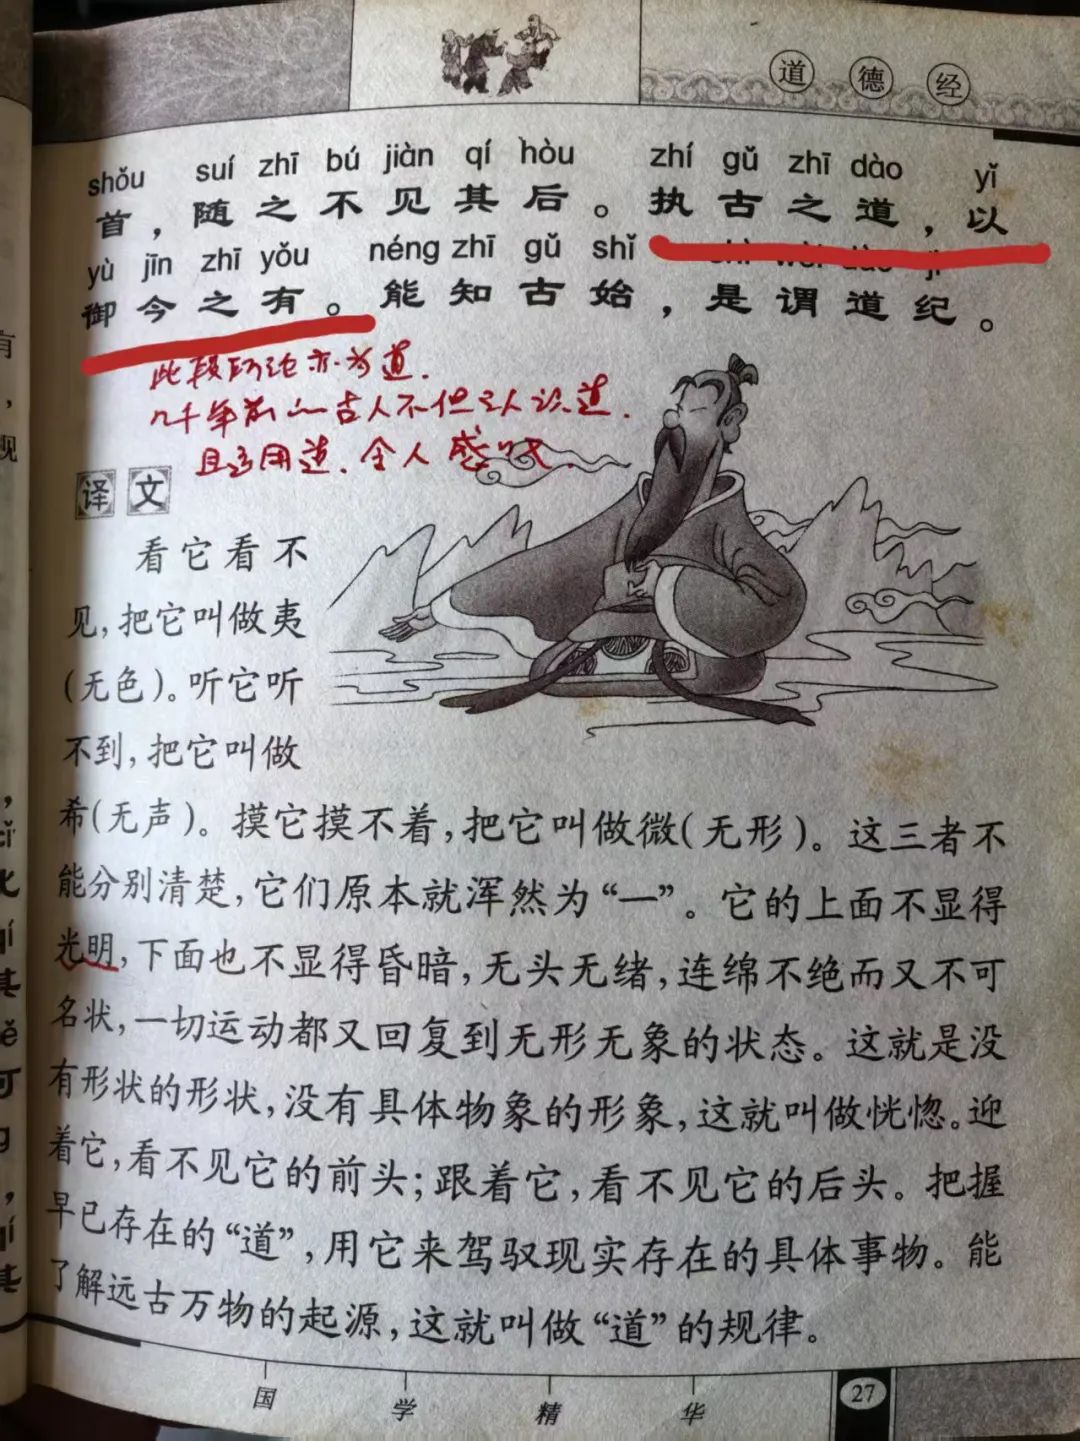 道德经
shǒu suí zhī bú jiàn qí hòu zhí gǔ zhī dào yǐ
首，随之不见其后。执古之道，以
yù jīn zhī yǒu néng zhī gǔ shǐ shì wèi dào jì
御今之有。能知古始，是谓道纪。
此段所论亦为道.
几千年前的古人不但认识道.
且运用道.令人感叹.
译文
看它看不
见，把它叫做夷
(无色)。听它听
不到，把它叫做
希(无声)。摸它摸不着，把它叫做微(无形)。这三者不
能分别清楚，它们原本就浑然为“一”。它的上面不显得
光明，下面也不显得昏暗，无头无绪，连绵不绝而又不可
名状，一切运动都又回复到无形无象的状态。这就是没
有形状的形状，没有具体物象的形象，这就叫做恍惚。迎
着它，看不见它的前头；跟着它，看不见它的后头。把握
早已存在的“道”，用它来驾驭现实存在的具体事物。能
了解远古万物的起源，这就叫做“道”的规律。
国学精华
27